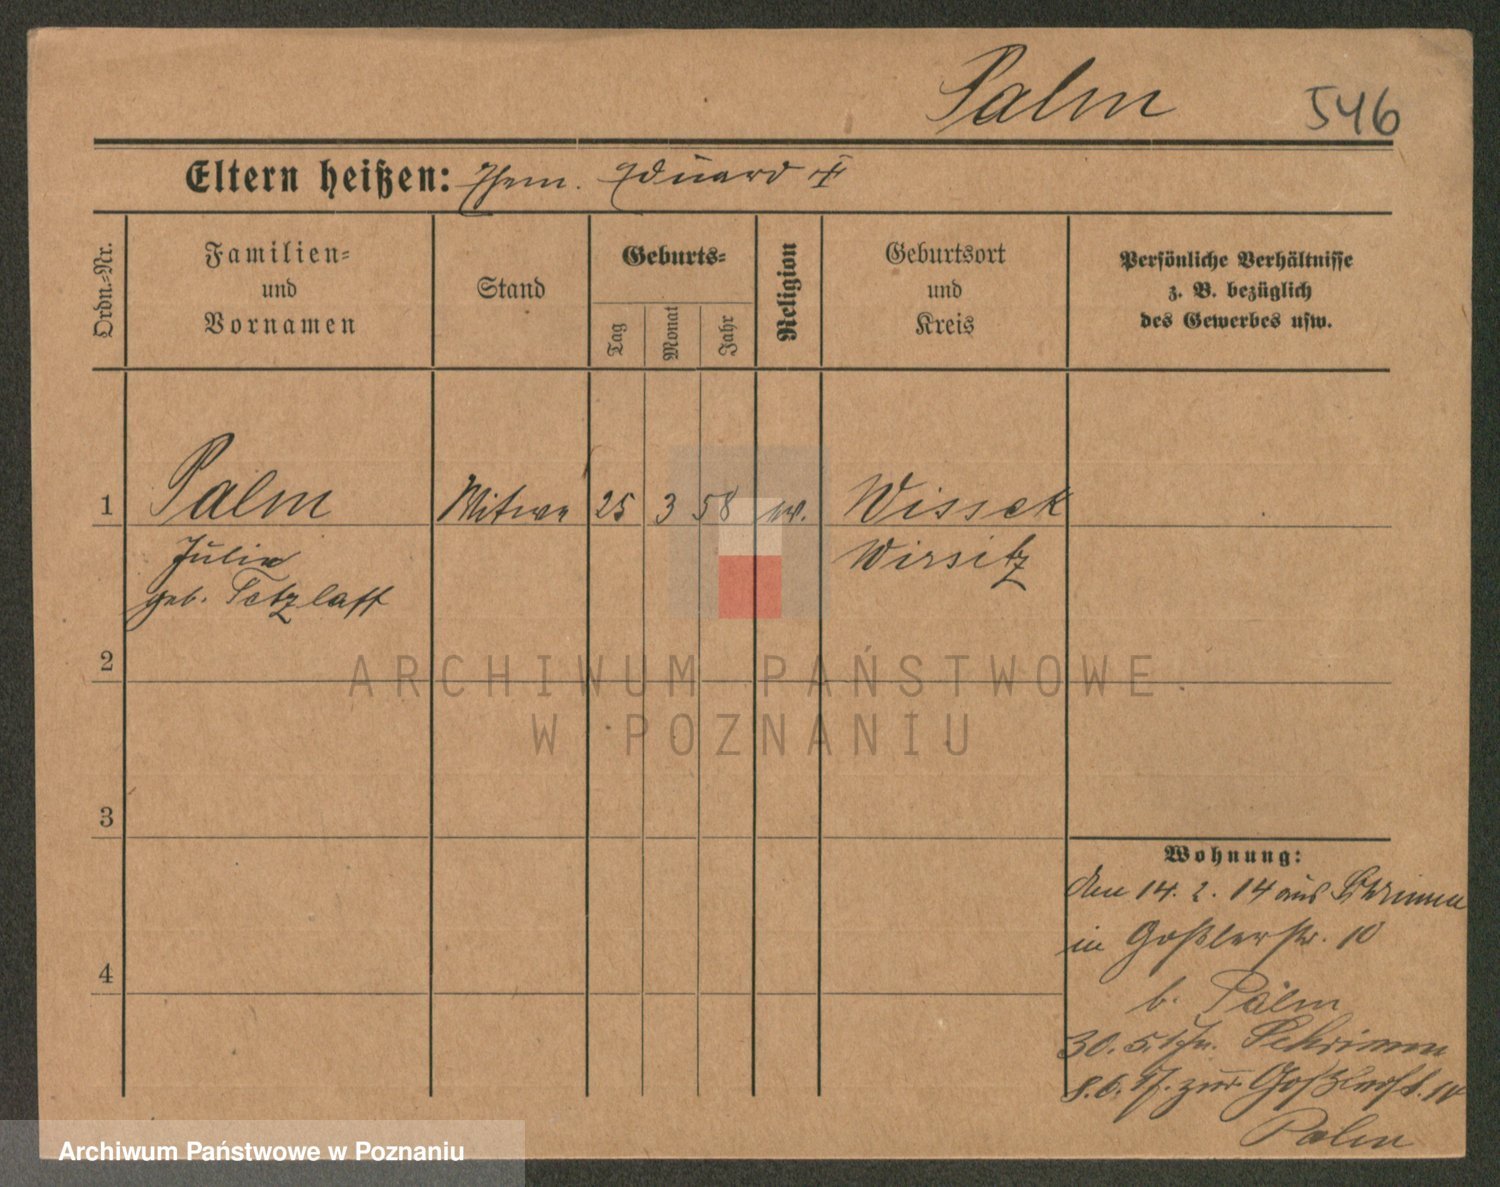 Palm 546
Eltern heißen: Ehem. Eduard
Ordn.-Nr.
Familien-
und
Vornamen
Stand
Geburts-
Tag
Monat
Jahr
Religion
Geburtsort
und
Kreis
Persönliche Verhältnisse
z. B. bezüglich
des Gewerbes usw.
1 Palm Witwe 25 3 58 ev. Wissek
Julie Wirsitz
geb. Tetzlaff
2
ARCHIWUM PAŃSTWOWE
W POZNANIU
3
Wohnung:
den 14. 2. 14 aus Schrimm
in Goßlerstr. 10
4
b. Palm
30. 5. 17 n. Schrimm
8. 6. 17. zur. Goßlerst. 10
Palm
Archiwum Państwowe w Poznaniu